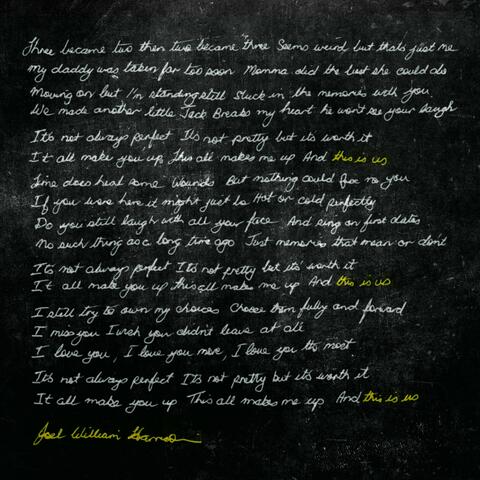 Three became two then two became three Seems weird but thats just me
my daddy was taken far too soon Momma did the best she could do
Moving on but I'm standing still Stuck in the memories with you
We made another little Jack Breaks my heart he won't see your laugh
It's not always perfect It's not pretty but its worth it
It all make you up, This all makes me up And this is us
Time does heal some wounds But nothing could fix me you
If you were here it might just be Hot or cold perfectly
Do you still laugh with all your face And sing on first dates
No such thing as a long time ago Just memories that mean or don't
It's not always perfect It's not pretty but its worth it
It all make you up this all makes me up And this is us
I still try to own my choices Choose them fully and forward
I miss you I wish you didn't leave at all
I love you, I love you more, I love you the most
It's not always perfect It's not pretty but its worth it
It all make you up This all makes me up And this is us
Joel William